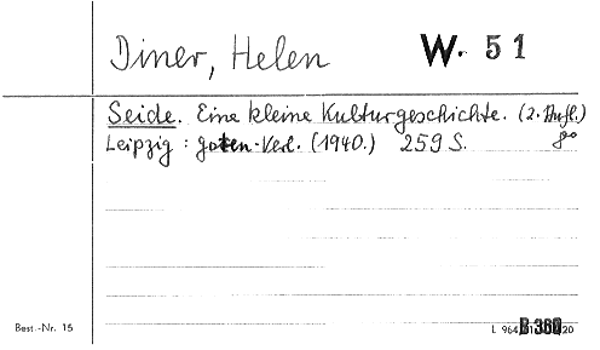 Diner, Helen W. 51
Seide. Eine kleine Kulturgeschichte. (2. Aufl.)
Leipzig : Goten-Verl. (1940.) 259 S. 8°
Best.-Nr. 15
L 964 B 360 20